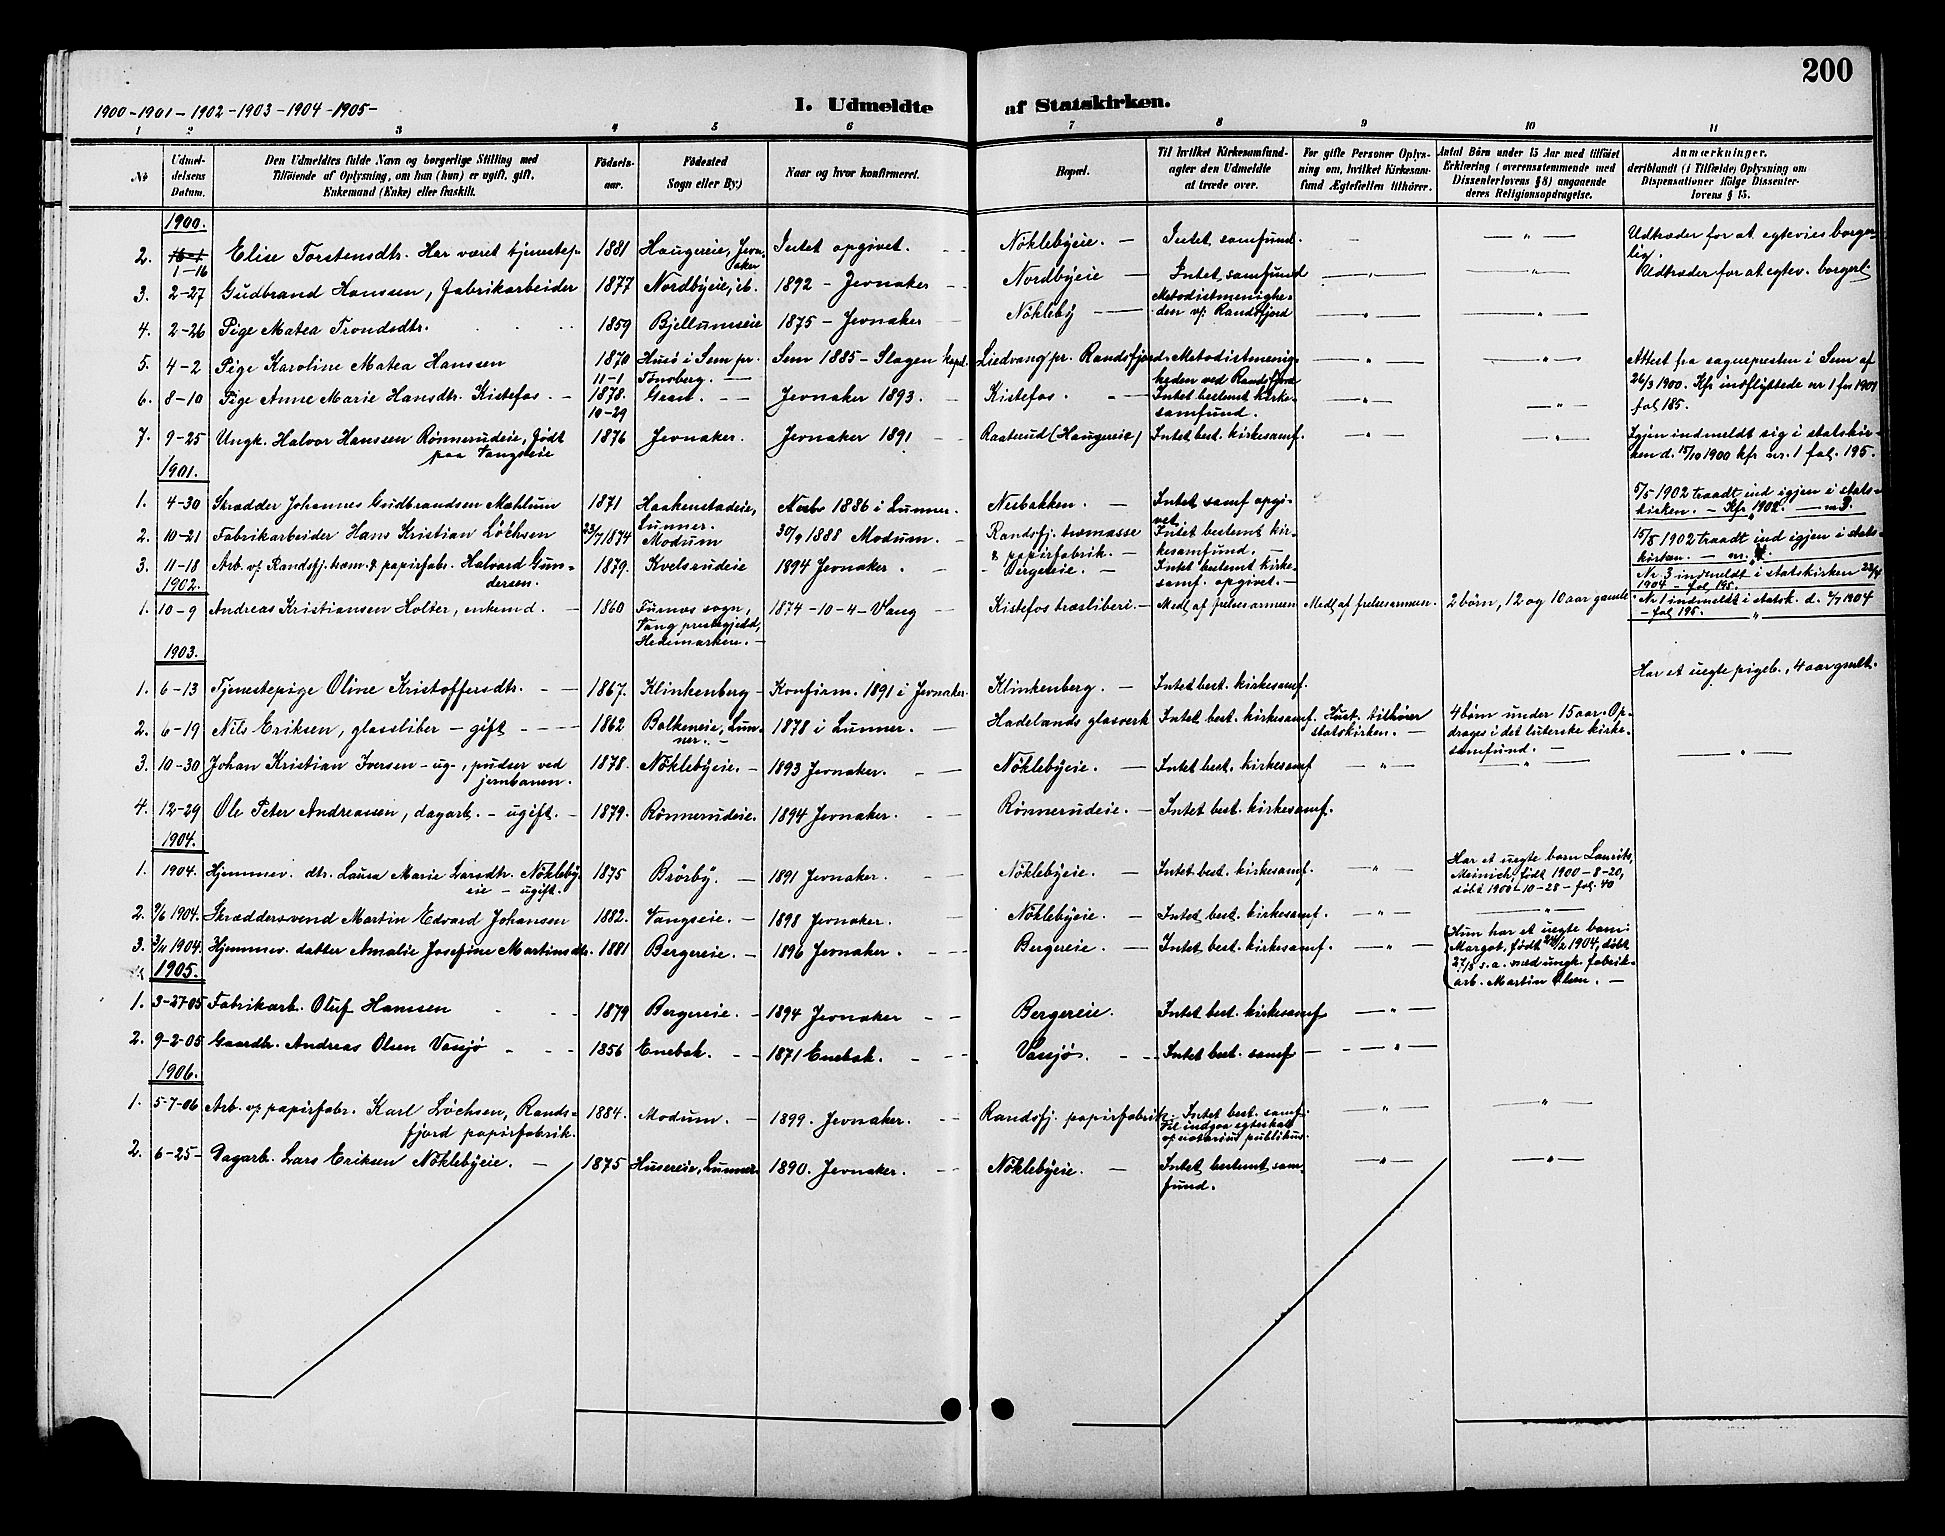 200
1900-1901-1902-1903-1904-1905-
1. Udmeldte af Statskirken.
1 2 3 4 5 6 7 8 9 10 11
No
Udmel-
delsens
Datum.
Den Udmeldtes fulde Navn og borgerlige Stilling med
Tilföiende af Oplysning, om han (hun) er ugift, gift,
Enkemand (Enke) eller fraskilt.
Födsels-
aar.
Födested
Sogn eller By.)
Naar og hvor konfirmeret.
Bopæl.
Til hvilket Kirkesamfund-
agter den Udmeldte
at træde over.
For gifte Personer Oplys-
ning om, hvilket Kirkesam-
fund Ægtefællen tilhörer.
Antal Börn under 15 Aar med tilföiet
Erklæring (overensstemmende med
Dissenterlovens § 8) angaaende
deres Religionsopdragelse.
Anmærkninger.
deriblandt (i Tilfælde) Oplysning om
Dispensationer ifölge Dissenter-
lovens § 15.
1900.
2. 1-16 Elise Torstensdtr. Har været tjenestep. 1881 Haugereie, Jevn-
aker Intet opgivet. Nöklebyeie. Intet samfund. - — " — Udtræder for at egtevies borger-
lig.
3. 2-27 Gudbrand Hanssen, fabrikarbeider 1877 Nordbyeie, ib. 1892 - Jevnaker Nordbyeie Intet samfund — " — — " — Udtræder for at egtev. borgerl.
4. 2-26 Pige Matea Trondsdtr. 1859 Bjellumseie 1875 - Jevnaker Nökleby Metodistmenighe-
den v/ Randsfjord — " — — " —
5. 4-2 Pige Karoline Matea Hanssen 1870
11-1 Husö i Sem pr.
Tönsberg. Sem 1885 - Slagen kapel. Liedvang pr. Randsfjord. Metodistmenig-
heden ved Randsfjord — " — — " — Attest fra sognepresten i Sem af
26/3 1900. Kfr indflyttede nr 1 for 1901
fol 185.
6. 8-10 Pige Anne Marie Hansdtr. Kistefos 1878.
10-29 Gran. Jevnaker 1893. Kistefos. Intet bestemt kirke-
samfund. — " — — " —
7. 9-25 Ungk. Halvor Hanssen Rönnerudeie, födt
paa Vangseie 1876 Jevnaker. Jevnaker 1891 Raaterud (Haugereie) Intet best. kirkesamf. — " — — " — Igjen indmeldt sig i statskir-
ken d. 15/10 1900 kfr nr. 1 fol. 195.
1901.
1. 4-30 Skrædder Johannes Gudbrandsen Mæhlum 1871 Haakenstadeie,
Lunner. 1886 i Lunner. Nesbakken. Intet samf opgi-
vet. 6/5 1902 traadt ind igjen i stats-
kirken. - Kfr 1902. — nr 3.
2. 10-21 Fabrikarbeider Hans Kristian Löchsen 23/7 1874 Modum 30/9 1888 Modum. Randsfj. træmasse
& papirfabrik. Intet bestemt kir-
kesamfund. 15/5 1902 traadt ind igjen i stats-
kirken. — nr.
3. 11-18 Arb. v/ Randsfj. træm. & papirfabr. Halvard Gun-
dersen. 1879. Kvelsrudeie 1894 Jevnaker. Bergereie. Intet bestemt kirke-
samf. opgivet. Nr. 3 indmeldt i statskirken
1904 - fol 195.
1902.
1. 10-9 Andreas Kristiansen Holter, enkemd. 1860 Furnes sogn,
Vang prestegjeld,
Hedemarken. 1874-10-4 - Vang Kistefos træsliberi Medl. af frelsesarmeen Medl. af frelsesarmeen. 2 börn, 12 og 10 aar gamle. Nr 1 indmeldt i statsk. d. 1904
- fol 195. "
1903.
1. 6-13 Tjenestepige Oline Kristoffersdtr. 1867. Klinkenberg Konfirm. 1891 i Jevnaker. Klinkenberg. Intet best. kirkesamf. Har et uegte pigeb., 4 aar gmlt.
2. 6-19 Nils Eriksen, glassliber - gift 1862 Balkeneie, Lun-
ner. 1878 i Lunner. Hadelands glasverk Intet best. kirkesamf. Hust. tilhörer
statskirken. 4 börn under 15 aar. Op-
drages i det luterske kirke-
samfund.
3. 10-30 Johan Kristian Iversen - ug-, pudser ved
jernbanen. 1878. Nöklebyeie. 1893 Jevnaker. Nöklebyeie. Intet best. kirkesamf — " — — " — — " —
4. 12-29 Ole Peter Andreassen, dagarb. - ugift. 1879. Rönnerudeie. 1894 Jevnaker. Rönnerudeie. Intet best. kirkesamf.
1904.
1. 1904. Hjemmev. dtr. Laura Marie Larsdtr. Nökleby-
eie - ugift. 1875 Brörby. 1891 Jevnaker. Nöklebyeie. Intet best. kirkesamf. — " — Har et uegte barn Laurits,
Meinich, födt 1900-8-20,
döbt 1900-10-28 - fol. 40
2. 9/6 1904. Skræddersvend Martin Edvard Johansen 1882. Vangseie. 1898 Jevnaker. Nöklebyeie. Intet best. kirkesamf. — " — — " —
3. 3/11 1904. Hjemmev. datter Amalie Josefine Martinsdtr. 1881 Bergereie. 1896 Jevnaker. Bergereie. Intet best. kirkesamf. — " — Hun har et uegte barn:
Margot, födt 1904, döbt
27/8 s.a. med ungk. fabrik-
arb. Martin Olsen.
1905.
1. 3-27-05 Fabrikarb. Oluf Hanssen 1879 Bergereie. 1894 Jevnaker Bergereie. Intet best. kirkesamf — " —
2. 9-2-05 Gaardbr. Andreas Olsen Vasjö 1856 Enebak. 1871 Enebak. Vasjö. Intet best. samf — " —
1906.
1. 5-7-06 Arb. v/ papirfabr. Karl Löchsen, Rands-
fjord papirfabrik. 1884. Modum. 1899. Jevnaker. Randsfj. papirfabrik. Intet best. samf.
Vil indgaa egteskab
v/ notarius publikus. — " — — " —
2. 6-25- Dagarb. Lars Eriksen Nöklebyeie. 1875 Husereie, Lunner. 1890. Jevnaker. Nöklebyeie. Intet bestemt sam-
fund. — " — — " —